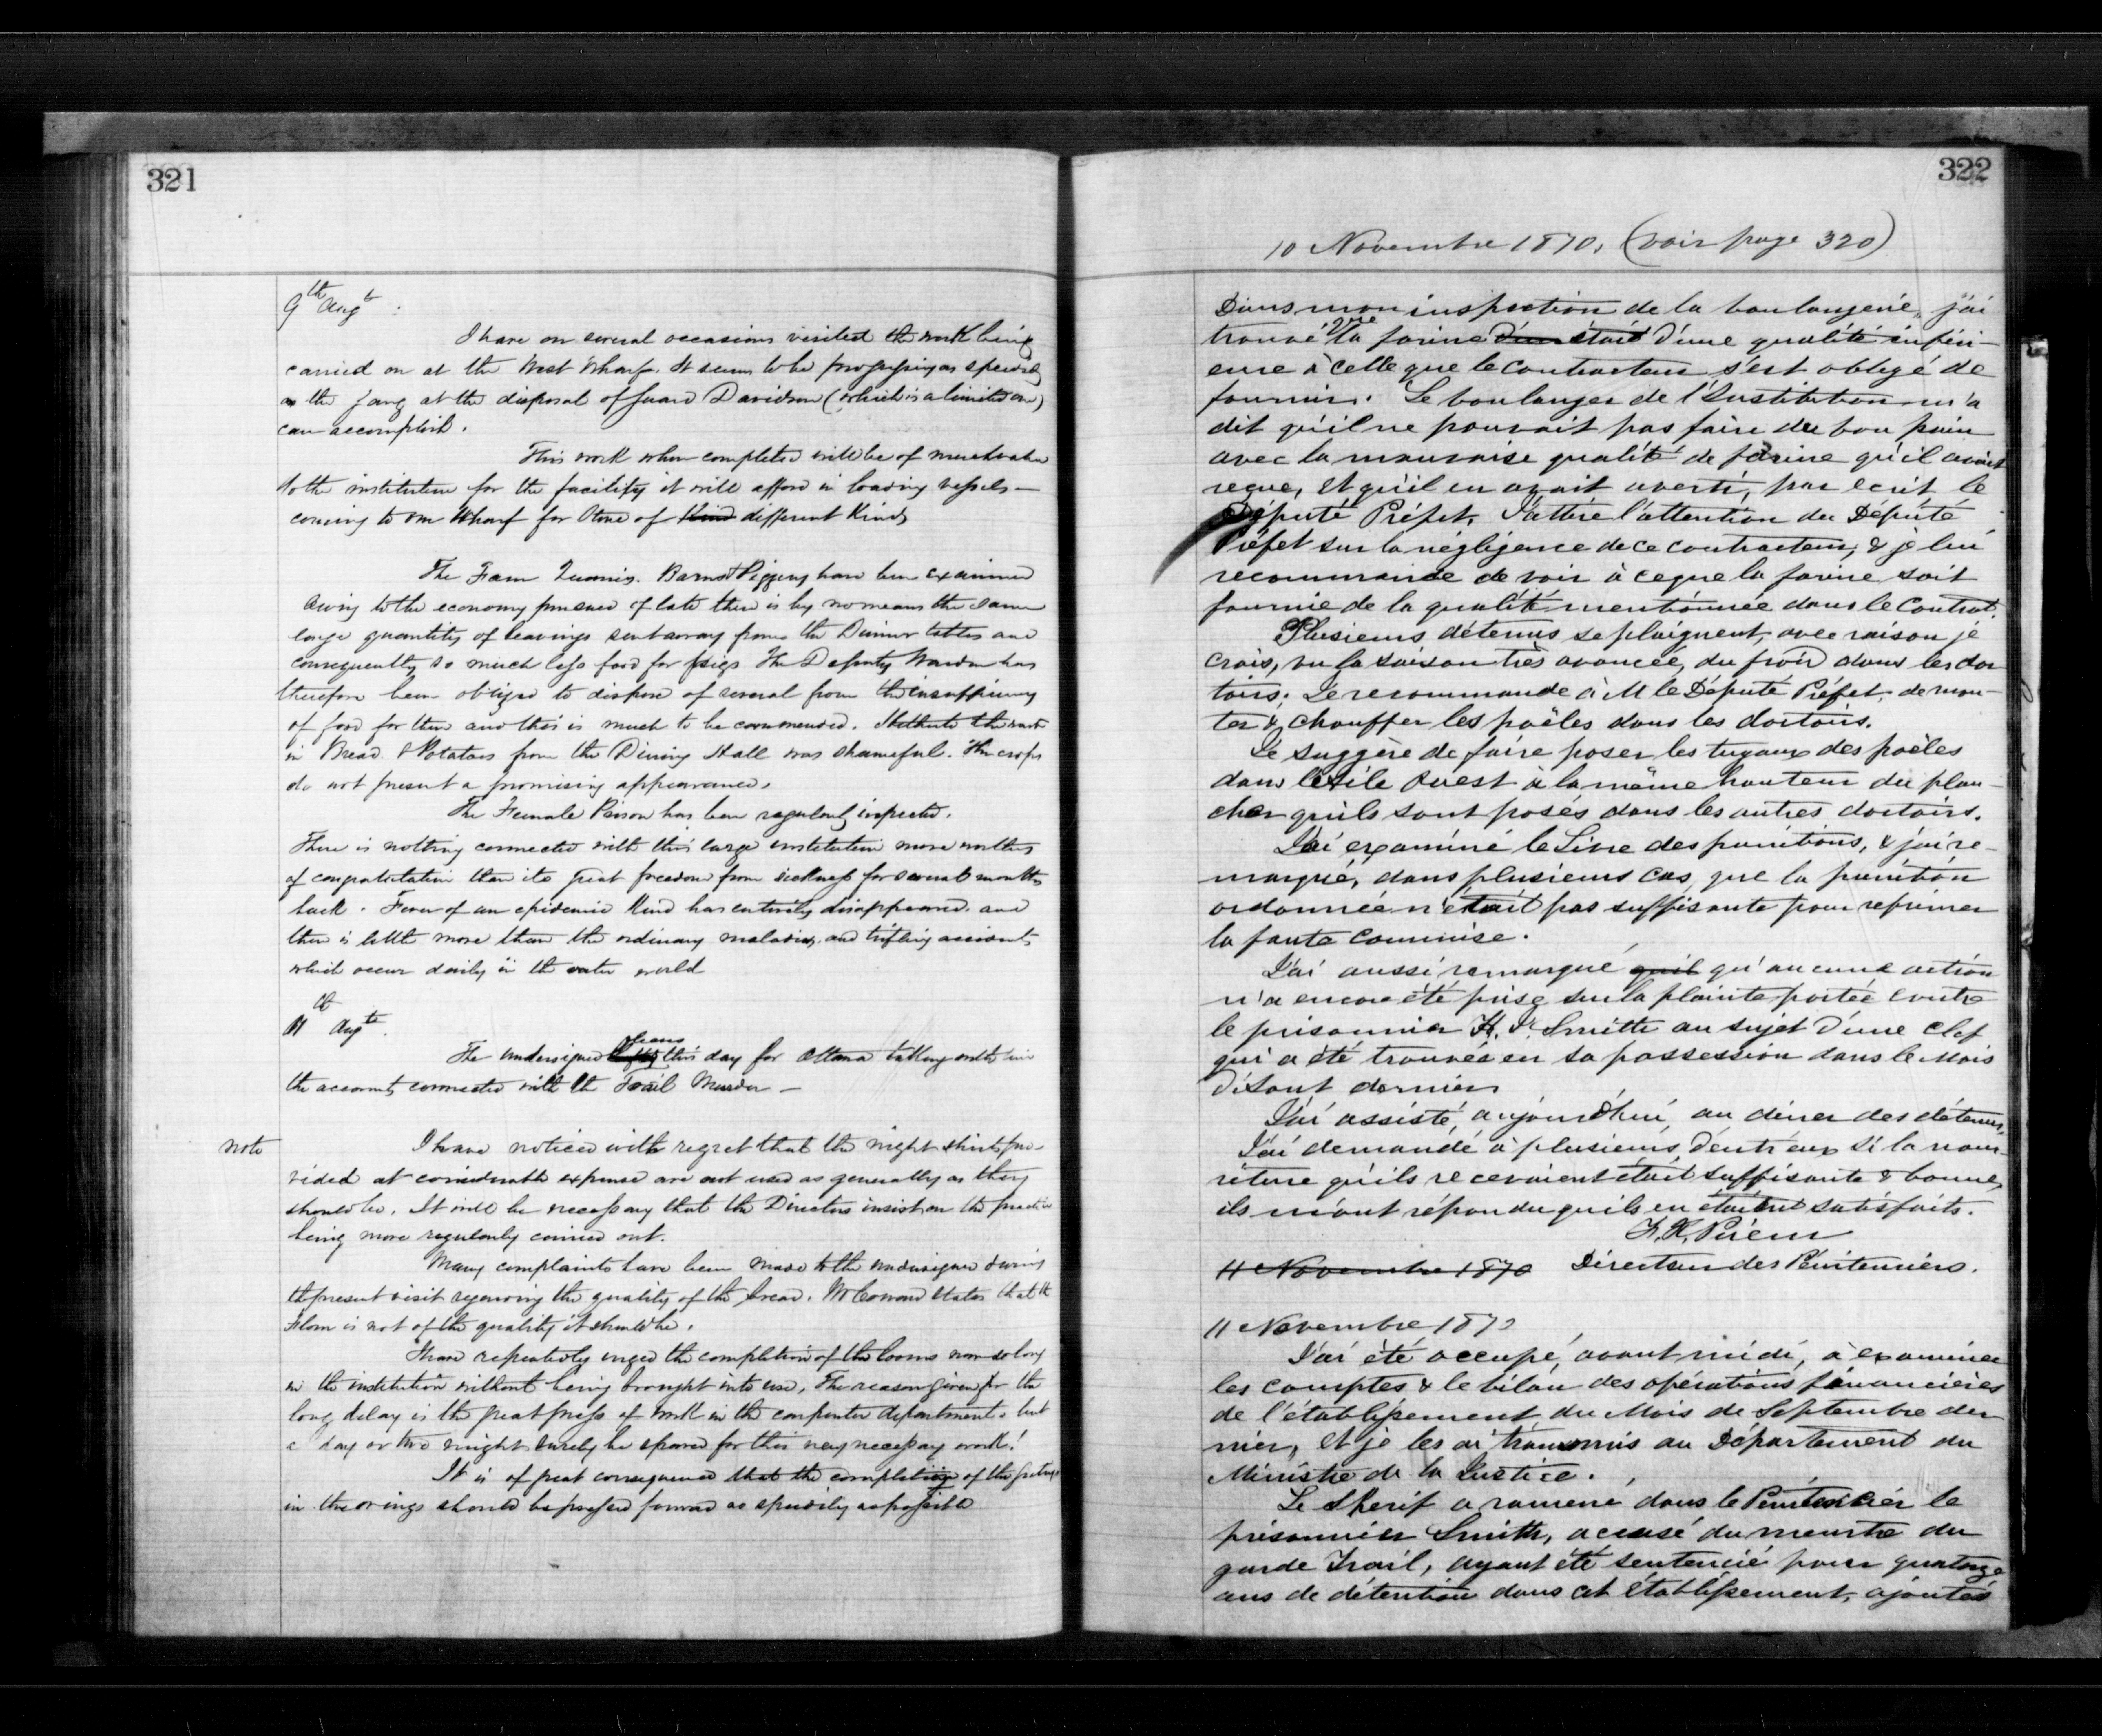 321
9th Augt.
I have on several occasions visited the work being
carried on at the West Wharf. It seems to be progressing as speedily
as the gang at the disposal of Guard Davidson (which is a limited one)
can accomplish.
This work when completed will be of much value
to the institution for the facility it will afford in loading vessels
coming to our Wharf for Stone of kind different kinds
The Farm Quarries. Barns & Piggery have been examined
Owing to the economy pursued of late there is by no means the same
large quantity of leavings sent away from the Dinner tables and
consequently so much less food for pigs The Deputy Warden has
therefore been obliged to dispose of several from the insufficiency
of food for them and this is much to be commended. Hitherto the waste
in Bread & Potatoes from the Dining Hall was shameful. The crops
do not present a promising appearance.
The Female Prison has been regularly inspected.
There is nothing connected with this large institution more worthy
of congratulation than its great freedom from sickness for several months
back. Fever of an epidemic kind has entirely disappeared and
there is little more than the ordinary maladies and trifling accidents
which occur daily in the outer world
11th Augt.
The undersigned leaves this day for Ottawa taking with him
the accounts connected with the Trail Murder —
note
I have noticed with regret that the night shirts pro-
vided at considerable expense are not used as generally as they
should be. It will be necessary that the Directors insist on the practice
being more regularly carried out.
Many complaints have been made to the undersigned during
the present visit regarding the quality of the bread. states that the
Flour is not of the quality it should be.
I have repeatedly urged the completion of the looms now so long
in the institution without being brought into use. The reason given for the
long delay is the great press of work in the carpenter department. but
a day or two might surely be spared for this very necessary work!
It is of great consequence that the completion of the
in the wings should be pressed forward as speedily as possible
322
10 Novembre 1870. (voir page 320)
Dans mon inspection de la boulangerie, j'ai
trouvé que la farine d'un était d'une qualité inféri-
eure à celle que le contracteur s'est obligé de
fournir. Le boulanger de l'Institution m'a
dit qu'il ne pouvait pas faire du bon pain
avec la mauvaise qualité de farine qu'il avait
reçue, et qu'il en avait averti, par écrit le
Député Préfet. J'attire l'attention du Député
Préfet sur la négligence de ce contracteur, & je lui
recommande de voir à ce que la farine soit
fournie de la qualité mentionnée dans le Contrat.
Plusieurs détenus se plaignent, avec raison je
crois, vu la saison très avancée, du froid dans les dor
toirs. Je recommande à M le Député Préfet, de mon-
ter & chauffer les poêles dans les dortoirs.
Je suggère de faire poser les tuyaux des poêles
dans l'aile Ouest à la même hauteur du plan-
cher qu'ils sont posés dans les autres dortoirs.
J'ai examiné le Livre des punitions, & j'ai re-
marqué, dans plusieurs cas, que la punition
ordonnée n'était pas suffisante pour réprimer
la faute commise.
J'ai aussi remarqué qu'il qu'aucune action
n'a encore été prise sur la plainte portée contre
le prisonnier Smith au sujet d'une clef
qui a été trouvée en sa possession dans le Mois
d'Aout dernier
J'ai assisté, aujourd'hui, au diner des détenus.
J'ai demandé à plusieurs d'entr'eux si la nour-
riture qu'ils recevaient était suffisante & bonne,
ils m'ont répondu qu'ils en étaient satisfaits.
Directeur des Pénitenciers.
11 Novembre 1870
11 Novembre 1870
J'ai été occupé, avant midi, à examiner
les comptes & le bilan des opérations financières
de l'établissement du Mois de Septembre der-
nier, et je les ai transmis au Département du
Ministre de la Justice.
Le Sherif a ramené dans le Pénitencier le
prisonnier Smith, accusé du meurtre du
garde Trail, ayant été sentencié pour quatorze
ans de détention dans cet établissement, ajoutés